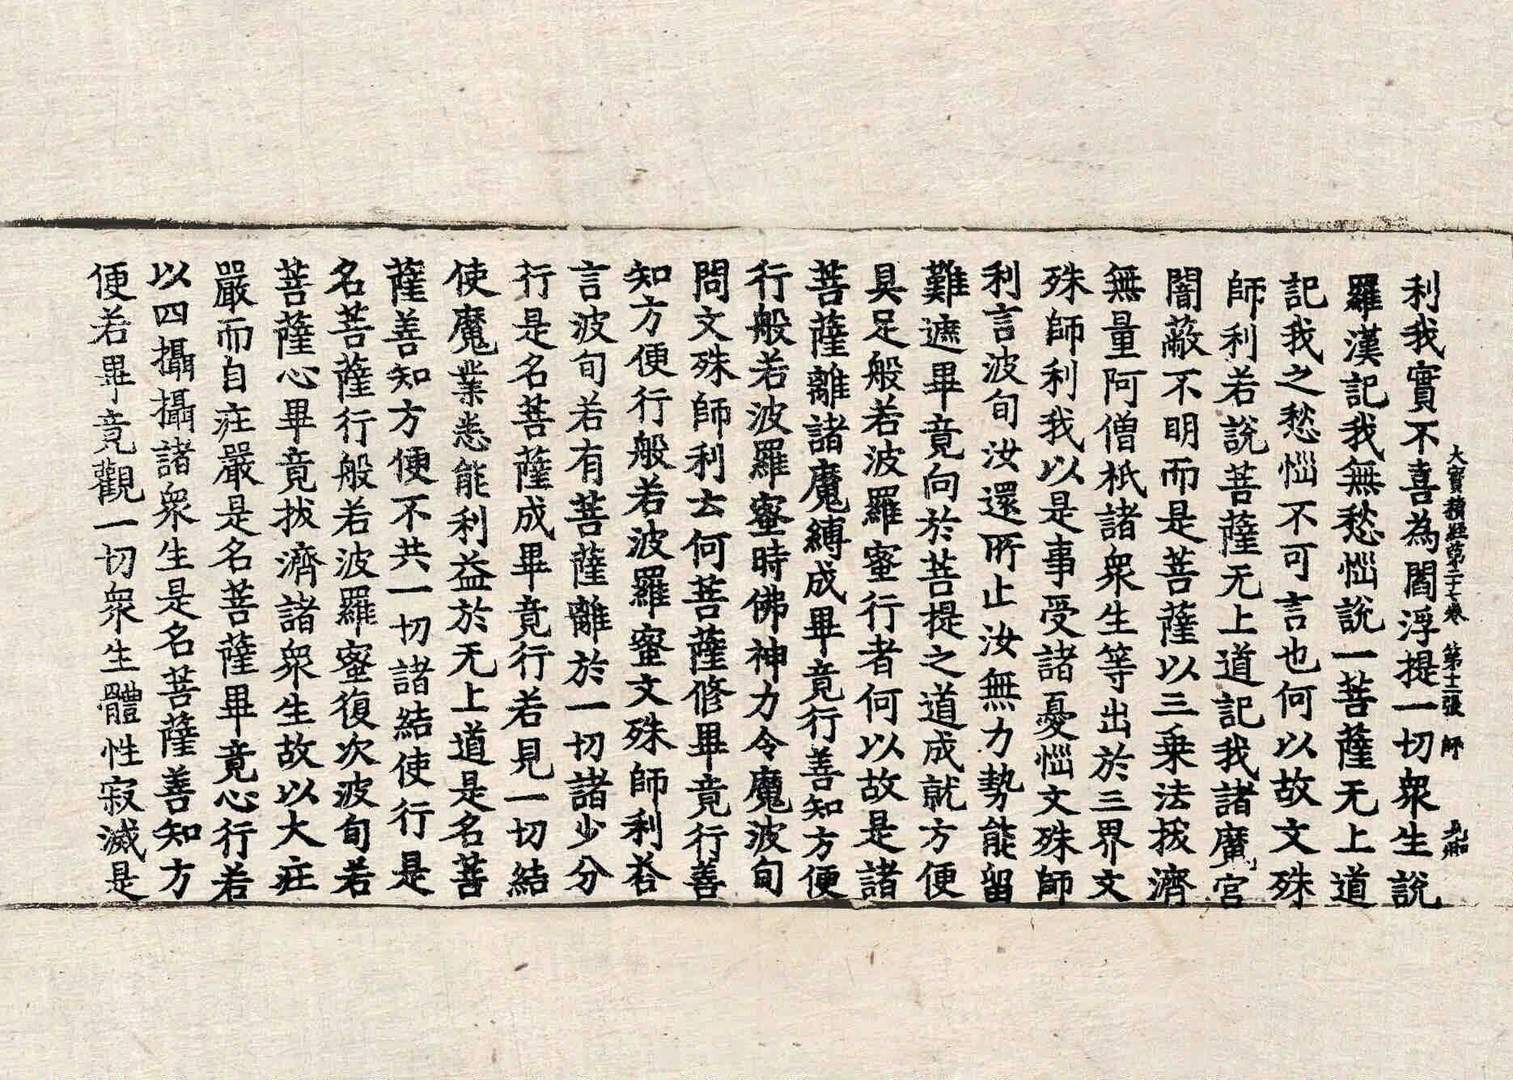 大寳積經第二十七卷 第十二張 師
利我實不喜為閻浮提一切衆生說
羅漢記我無愁惱說一菩薩无上道
記我之愁惱不可言也何以故文殊
師利若說菩薩无上道記我諸魔宮
闇蔽不明而是菩薩以三乗法拔濟
無量阿僧祇諸衆生等出於三界文
殊師利我以是事受諸憂惱文殊師
利言波旬汝還所止汝無力勢能留
難遮畢竟向於菩提之道成就方便
具足般若波羅蜜行者何以故是諸
菩薩離諸魔縛成畢竟行善知方便
行般若波羅蜜時佛神力令魔波旬
問文殊師利云何菩薩修畢竟行善
知方便行般若波羅蜜文殊師利荅
言波旬若有菩薩離於一切諸少分
行是名菩薩成畢竟行若見一切結
使魔業悉能利益於无上道是名菩
薩善知方便不共一切諸結使行是
名菩薩行般若波羅蜜復次波旬若
菩薩心畢竟拔濟諸衆生故以大莊
嚴而自莊嚴是名菩薩畢竟心行若
以四攝攝諸衆生是名菩薩善知方
便若畢竟觀一切衆生體性寂滅是